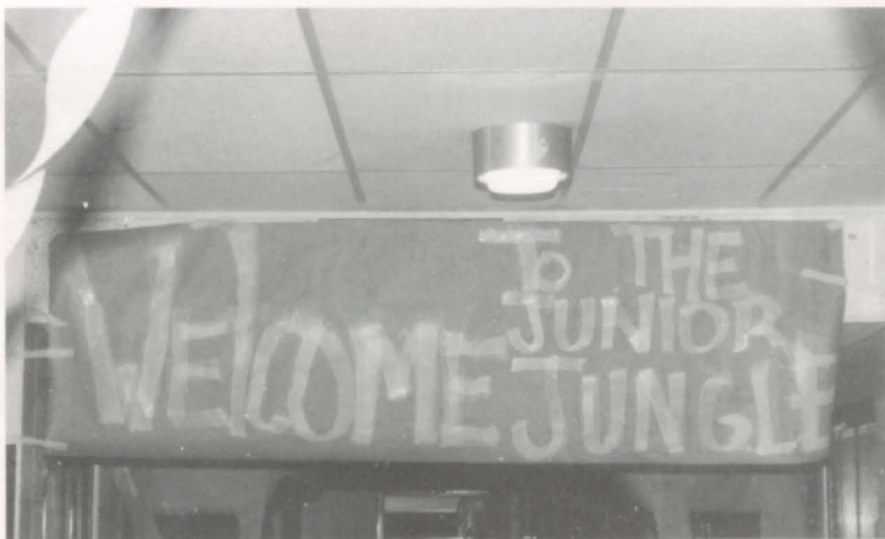 WElCOME
To THE
JUNIOR
JUNGLE